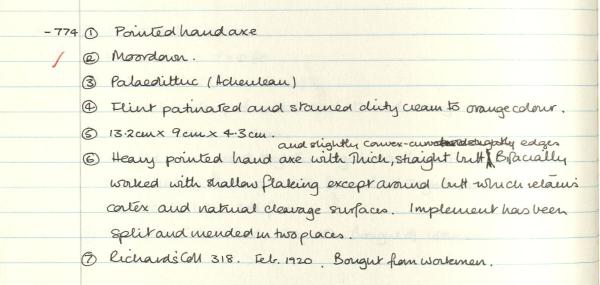 -774 ① Pointed handaxe
② Moordown.
③ Palaeolithic (Acheulean)
④ Flint patinated and stained dirty cream to orange colour.
⑤ 13.2cm x 9cm x 4.3cm.
and slightly convex edges
⑥ Heavy pointed hand axe with thick, straight butt Bifacially
worked with shallow flaking except around butt which retains
cortex and natural cleavage surfaces. Implement has been
split and mended in two places.
⑦ Richards Coll 318. Feb. 1920. Bought from workmen.